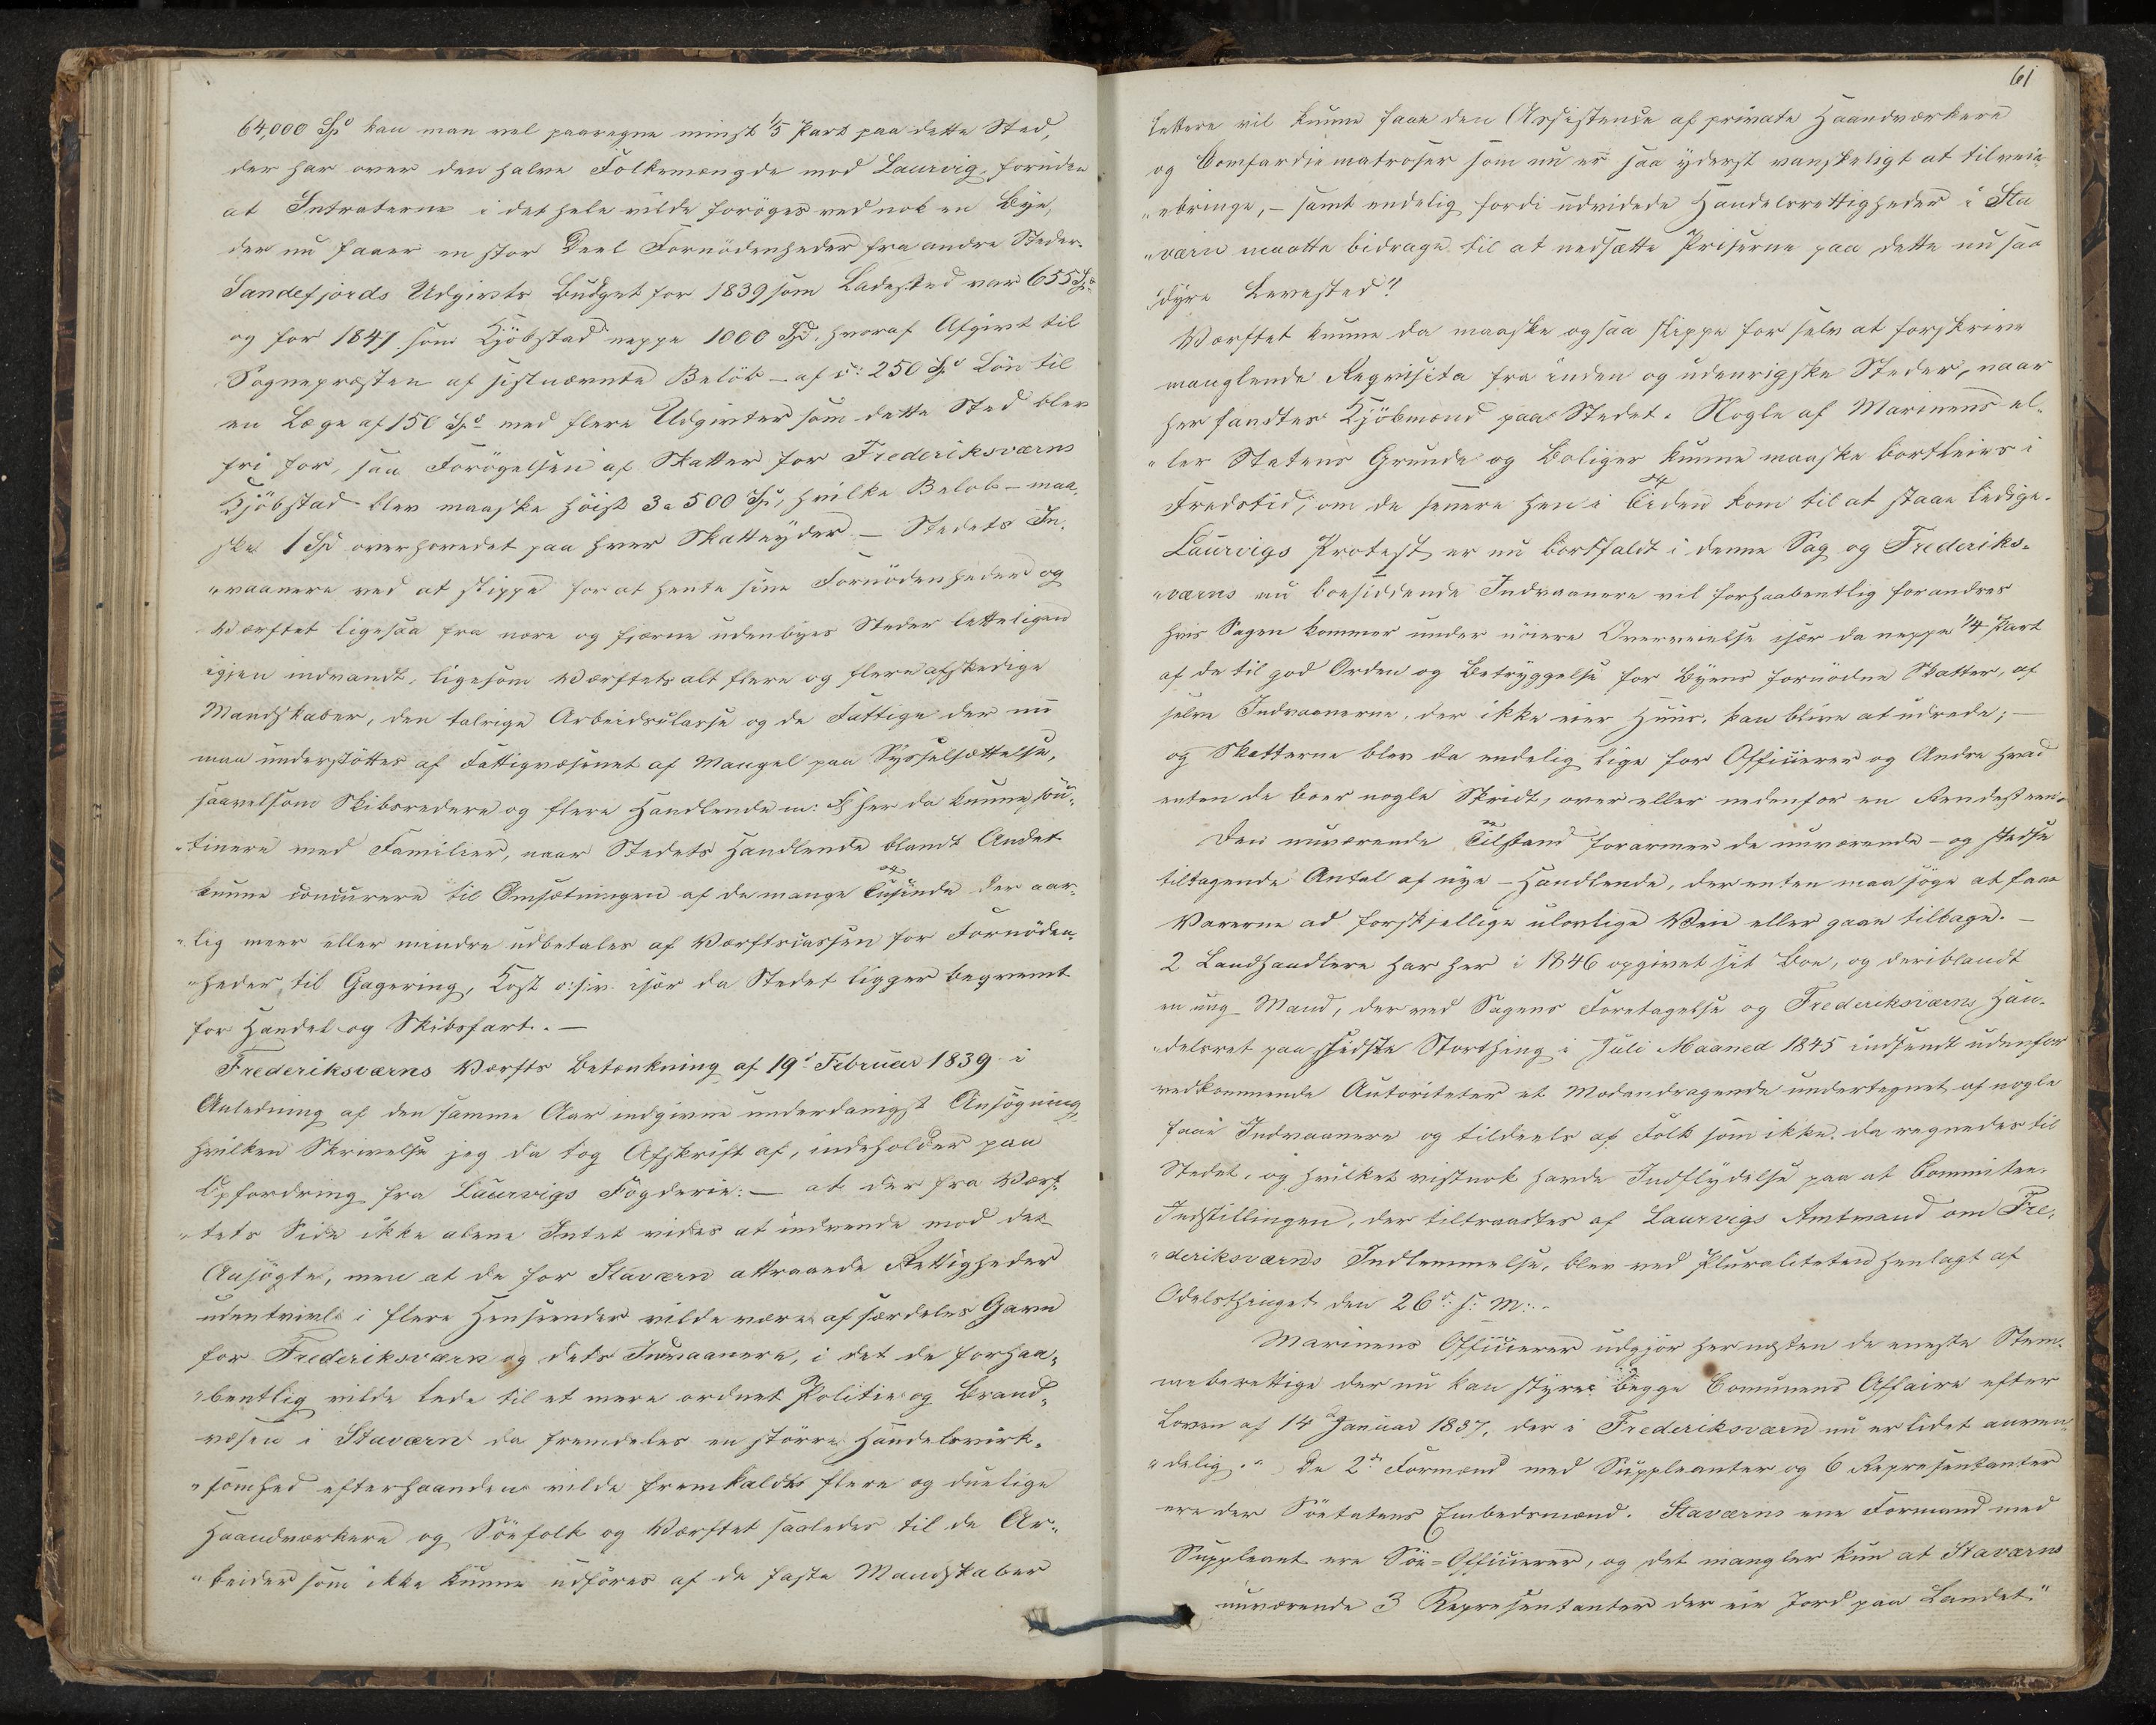 64,000 Spd kan man vel paaregne minst 1/5 Part paa dette Sted,
der har over den halve Folkemængde mod Laurvig, foruden
at Intraderne i det hele vilde forøges ved nok en Bye,
der nu faaer en stor Deel Fornödenheder fra andre Steder.
Sandefjords Udgivts Budget for 1839 som Ladested var 655 Spd
og for 1847 som Kjöbstad neppe 1000 Spd, hvoraf Afgivt til
Sognepræsten af sistnævnte Belöb – af c: 250 Spd Lön til
en Læge af 150 Spd med flere Udgivter som dette Sted blev
fri for, saa Forögelsen af Skatter for Frederiksværns
Kjöbstad blev maaske höist 3 a 500 Spd, hvilke Belöb – maa-
ske 1 Spd overhovedet paa hver Skatteyder – Stedets In-
"vaanere ved at slippe for at hente sine Fornödenheder og
Værftet ligesaa fra nære og fjærne udenbyes Steder letteligen
igjen indvandt, ligesom Værftets alt flere og flere afskedige
Mandskaber, den talrige Arbeidsclasse og de Fattige der nu
maa understöttes af Fattigvæsenet af Mangel paa Sysselsættelse,
saavelsom Skibsredere og flere Handlende m: fl her da kunne sou-
"tinere med Familier, naar Stedets Handlende blandt Andet
kunne concurere til Omsætningen af de mange Tusinde der aar-
"lig meer eller mindre udbetales af Værftscassen for Fornöden-
"heder, til Gagering, Kost o:s:v: især da Stedet ligger beqvemt
for Handel og Skibsfart. –
Frederiksværns Værfts Betænkning af 19d Februar 1839 i
Anledning af den samme Aar indgivne underdanigst Ansögning,
hvilken Skrivelse jeg da tog Afskrift af, indeholder paa
Opfordring fra Laurvigs Fogderie: – at der fra Værf-
"tets Side ikke alene Intet vides at indvende mod det
Ansögte, men at de for Staværn attraaede Rettigheder
udentvivl i flere Henseender vilde være af særdeles Gavn
for Frederiksværn og dets Indvaanere, i det de forhaa-
"bentlig vilde lede til et mere ordnet Politie og Brand-
væsen i Staværn da fremdeles en större Handelsvirk-
"somhed efterhaanden vilde fremkalde flere og duelige
Haandværkere og Söefolk og Værftet saaledes til de Ar-
"beider som ikke kunne udföres af de faste Mandskaber
61
lettere vil kunne faae den Assistence af private Haandværkere
og Comfardiematroser som nu er saa yderst vanskeligt at tilveie-
"bringe, – samt endelig fordi udvidede Handelsrettigheder i Sta
"værn maatte bidrage til at nedsætte Priserne paa dette nu saa
"dyre Levested"!
Værftet kunne da maaske ogsaa slippe for selv at forskrive
manglende Reqvisita fra inden og udenrigske Steder, naar
her fandtes Kjöbmænd paa Stedet. Nogle af Marinens el-
"ler Statens Grunde og Boliger kunne maaske bortleies i
Fredstid, om de senere hen i Tiden kom til at staae ledige.
Laurvigs Protest er nu bortfaldt i denne Sag og Frederiks-
"værns nu boesiddende Indvaanere vil forhaabentlig forandres
hvis Sagen kommer under nöiere Overveielse især da neppe 1/4 Part
af de til god Orden og Betryggelse for Byens fornödne Skatter, af
selve Indvaanerne, der ikke eier Huus, kan blive at udrede; –
og Skatterne blev da endelig lige for Officierer og Andre hvad
enten de boer nogle Skridt, over eller nedenfor en Rendesteen.
Den nuværende Tilstand forarmer de nuværende – og stedse
tiltagende Antal af nye – Handlende, der enten maa söge at faae
Varerne ad forskjellige ulovlige Veie eller gaae tilbage. –
2 Landhandlere har her i 1846 opgivet sit Boe, og deriblandt
en ung Mand, der ved Sagens Foretagelse og Frederiksværns Han-
"delsret paa sidste Storthing i Juli Maaned 1845 indsendt udenfor
vedkommende Autoriteter et Modandragende undertegnet af nogle
faae Indvaanere og tildeels af Folk som ikke da regnedes til
Stedet, og hvilket vistnok havde Indflydelse paa at Committee
Indstillingen, der tiltraadtes af Laurvigs Amtmand om Fre-
"deriksværns Indlemmelse, blev ved Pluraliteten henlagt af
Odelsthinget den 26d: s: M: –
Marinens Officierer udgjör her næsten de eneste Stem-
meberettige der nu kan styre begge Comunens Affaire efter
Loven af 14d Januar 1837, der i Frederiksværn nu er lidet anven-
"delig." De 2de Formænd med Suppleanter og 6 Representanter
ere der Söetatens Embedsmænd. Staværns ene Formand med
Suppleant ere Söe-Officierer, og det mangler kun at Staværns
nuværende 3 Representanter der eie Jord paa Landet"